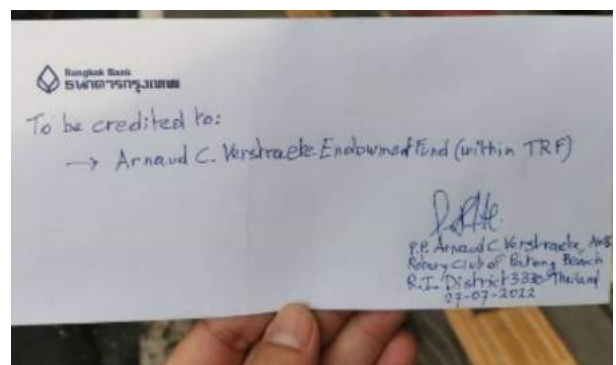 Bangkok Bank
ธนาคารกรุงเทพ
To be credited to:
→ Arnaud C. Verstraete Endowment Fund (within TRF)
P.P. Arnaud C Verstraete, AKS
Rotary Club of Patong Beach
R.I. District 3330 Thailand
27-07-2022